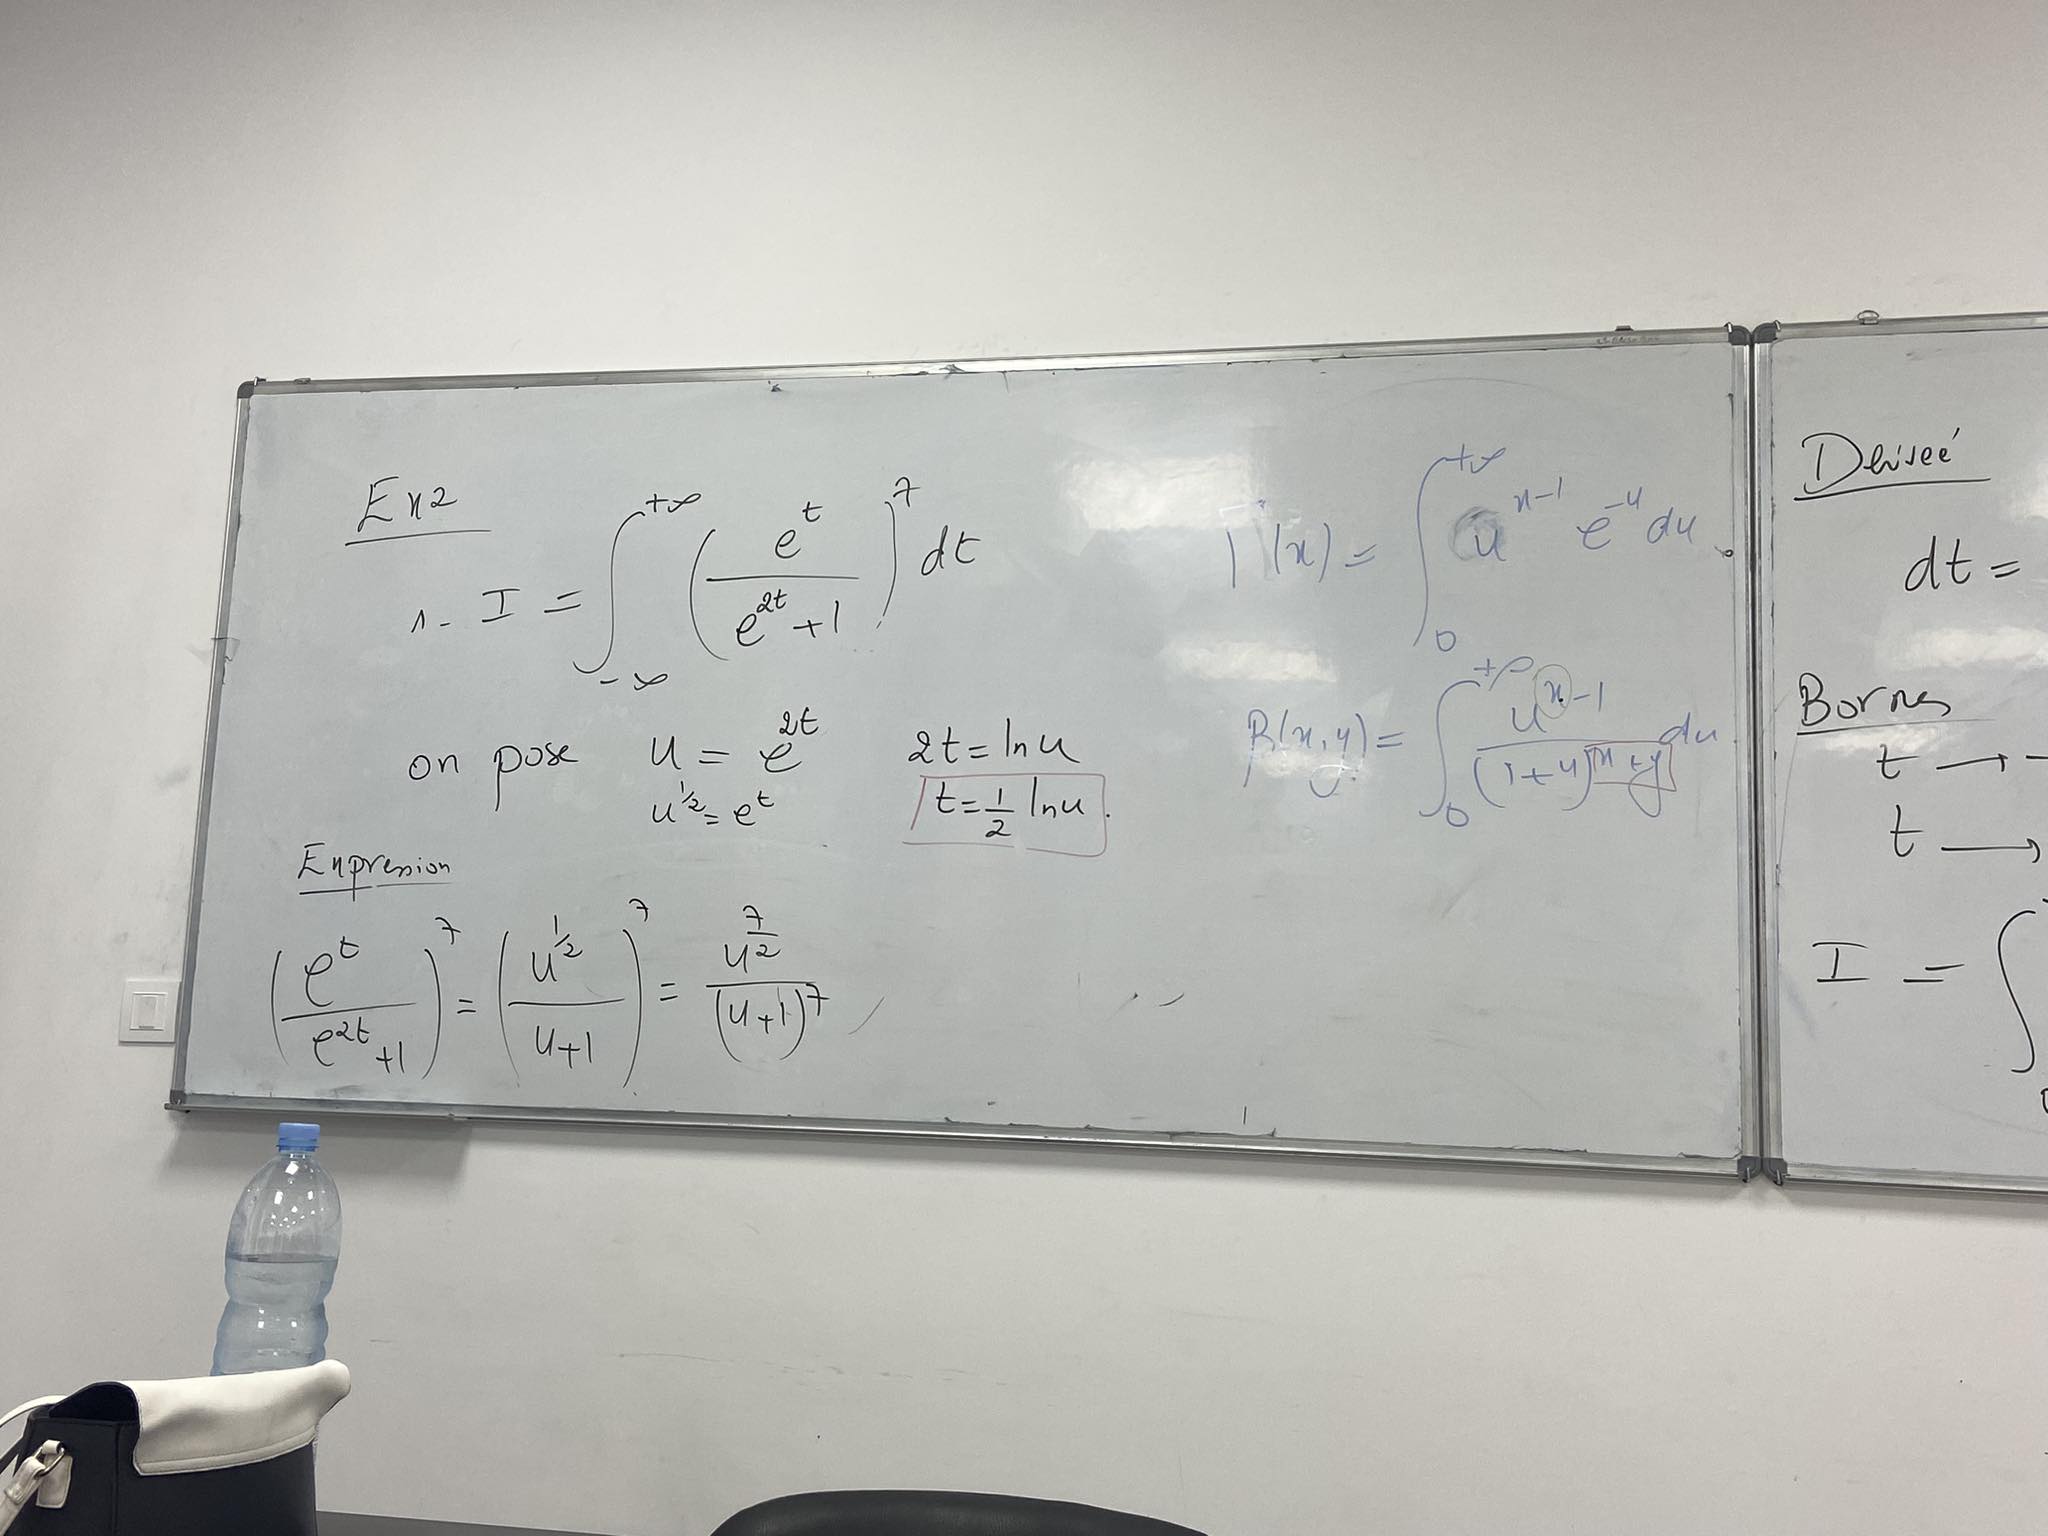 Ex2
1- I = ∫_{-∞}^{+∞} (e^t / (e^{2t} + 1))^7 dt
on pose u = e^{2t} 2t = ln u
u^{1/2} = e^t t = 1/2 ln u.
Expression
(e^t / (e^{2t} + 1))^7 = (u^{1/2} / (u+1))^7 = u^{7/2} / (u+1)^7
Γ(x) = ∫_0^{+∞} u^{x-1} e^{-u} du
B(x,y) = ∫_0^{+∞} u^{x-1} / (1+u)^{x+y} du
Derivée
dt =
Bornes
t → -
t →
I = ∫